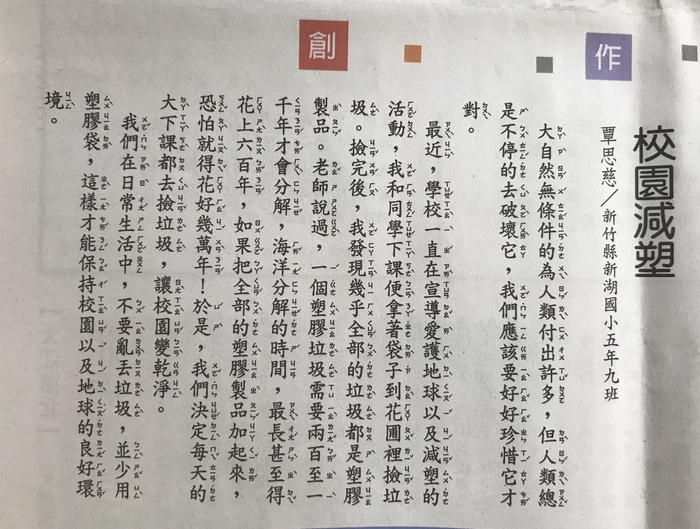 創作
校園減塑
覃思慈／新竹縣新湖國小五年九班
大自然無條件的為人類付出許多，但人類總
是不停的去破壞它，我們應該要好好珍惜它才
對。
最近，學校一直在宣導愛護地球以及減塑的
活動，我和同學下課便拿著袋子到花圃裡撿垃
圾。撿完後，我發現幾乎全部的垃圾都是塑膠
製品。老師說過，一個塑膠垃圾需要兩百至一
千年才會分解，海洋分解的時間，最長甚至得
花上六百年，如果把全部的塑膠製品加起來，
恐怕就得花好幾萬年！於是，我們決定每天的
大下課都去撿垃圾，讓校園變乾淨。
我們在日常生活中，不要亂丟垃圾，並少用
塑膠袋，這樣才能保持校園以及地球的良好環
境。